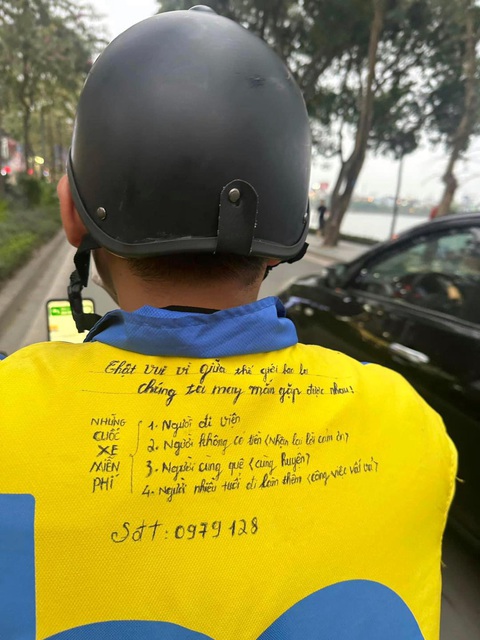 Thật vui vì giữa thế giới bao la
chúng ta may mắn gặp được nhau!
NHỮNG CUỐC XE MIỄN PHÍ
1. Người đi viện
2. Người không có tiền (nhận lại lời cảm ơn)
3. Người cùng quê (cùng huyện)
4. Người nhiều tuổi đi làm thêm (công việc vất vả)
Sđt: 0979 128